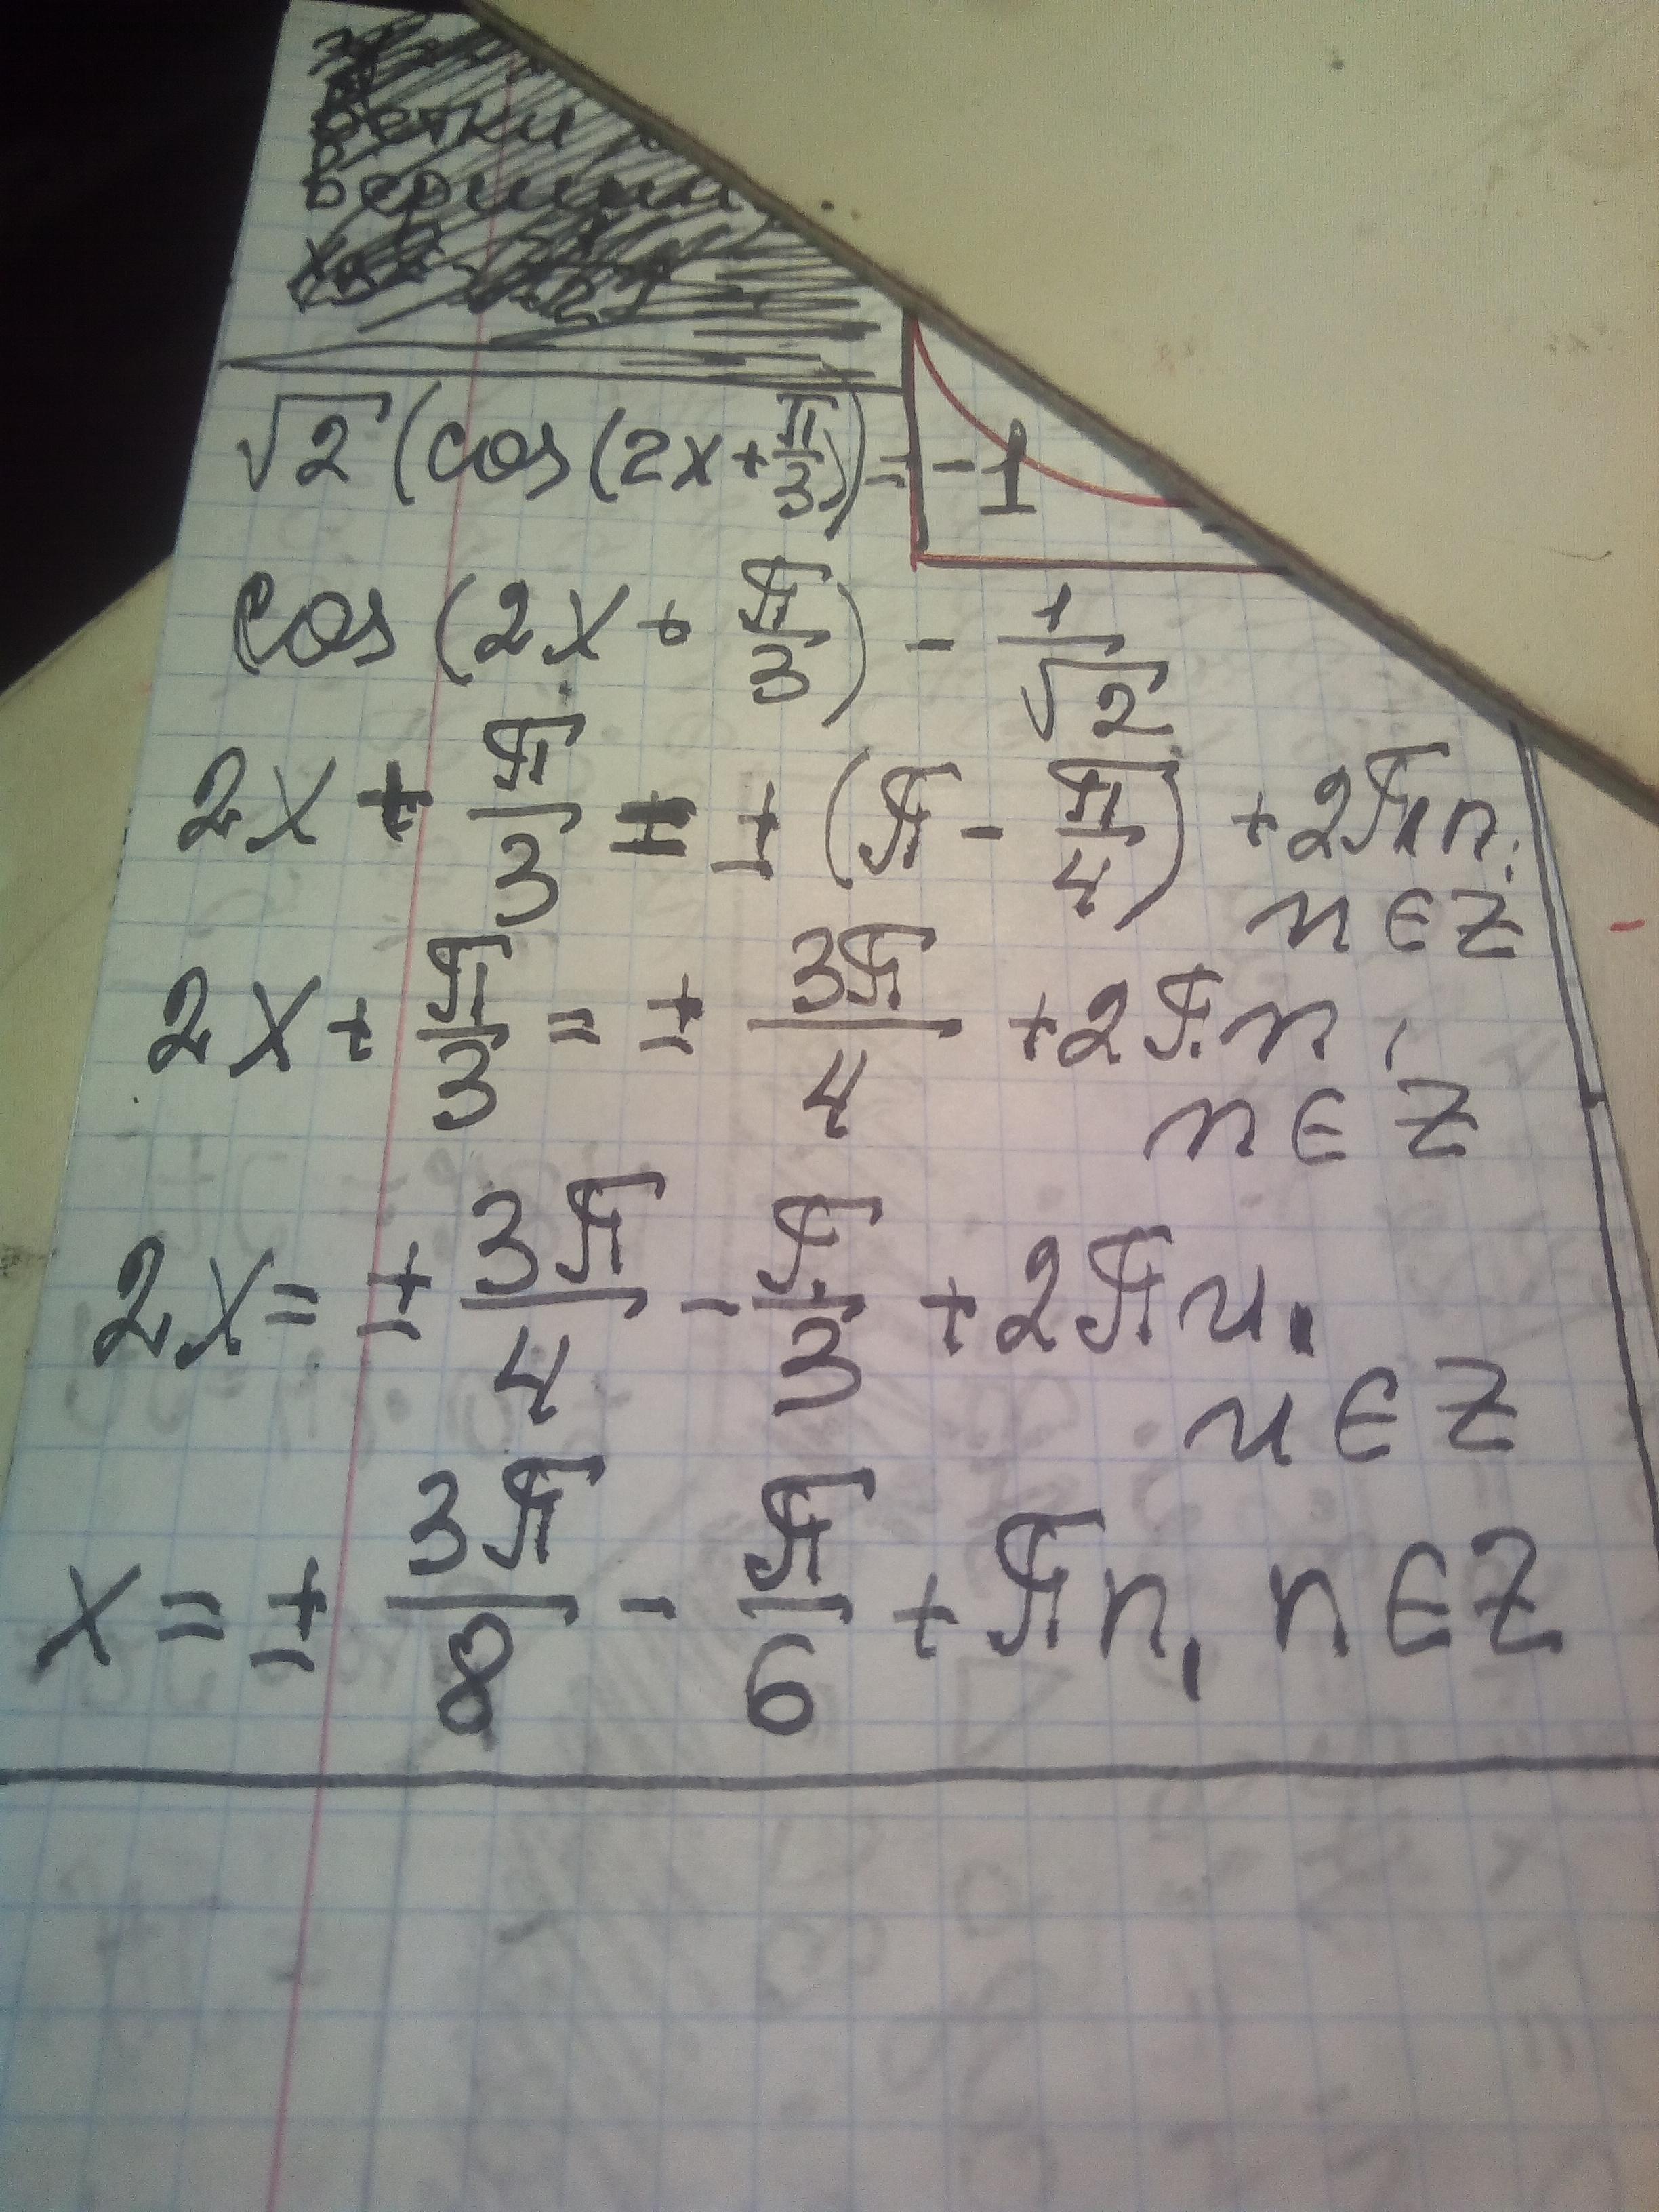 ветки
вершин
√2 (cos(2x + π/3)) = -1
cos (2x + π/3) - 1/√2
2x + π/3 = ± (π - π/4) + 2πn,
n ∈ Z
2x + π/3 = ± 3π/4 + 2πn,
n ∈ Z
2x = ± 3π/4 - π/3 + 2πn,
n ∈ Z
x = ± 3π/8 - π/6 + πn, n ∈ Z